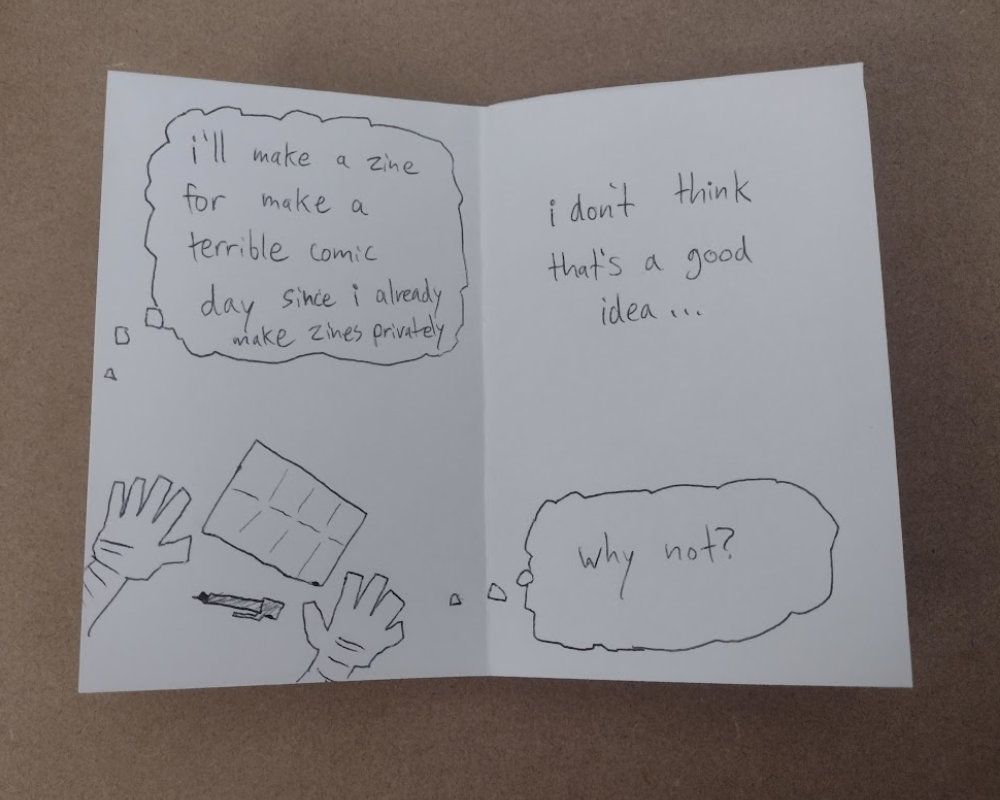 i'll make a zine
for make a
terrible comic
day since i already
make zines privately
i don't think
that's a good
idea...
why not?